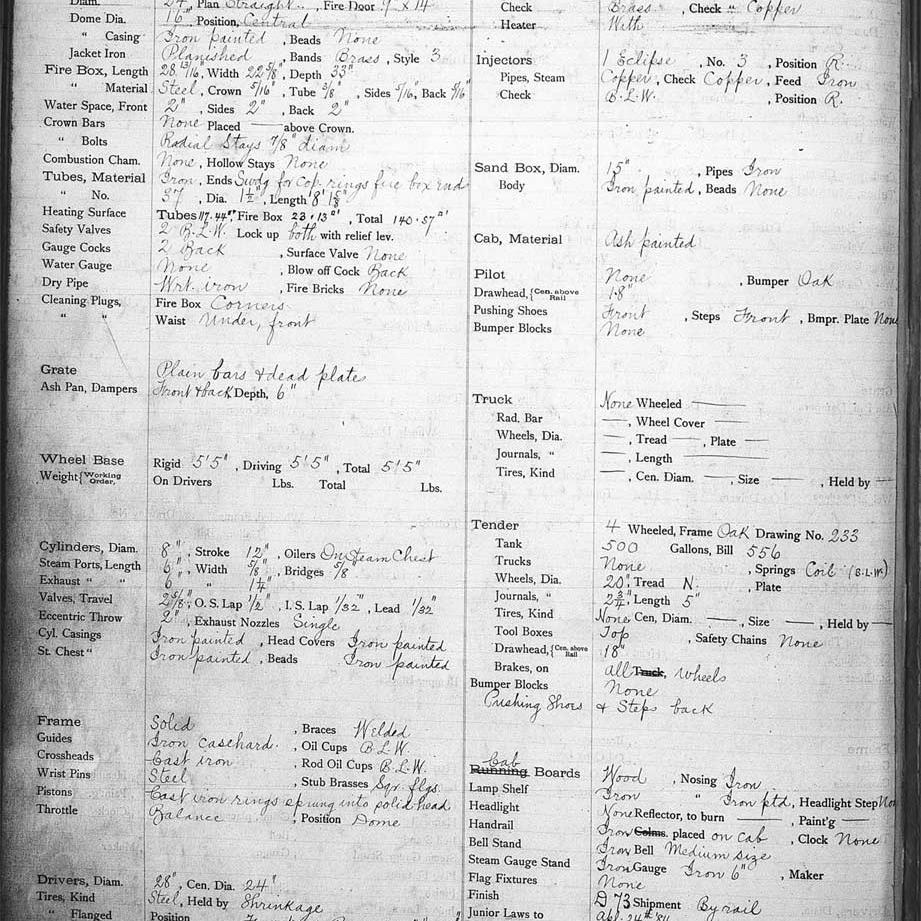 Diam. 24", Plan Straight, Fire Door 9" x 14"
Dome Dia. 16", Position, Central
" Casing Iron painted, Beads None
Jacket Iron Planished, Bands Brass, Style 3
Fire Box, Length 28 13/16", Width 22 5/8", Depth 33"
" Material Steel, Crown 5/16", Tube 3/8", Sides 5/16, Back 5/16
Water Space, Front 2", Sides 2", Back 2"
Crown Bars None Placed —— above Crown.
" Bolts Radial Stays 7/8" diam
Combustion Cham. None, Hollow Stays None
Tubes, Material Iron, Ends Swdg for cop. rings fire box end
" No. 57, Dia. 1½", Length 8'
Heating Surface Tubes 117.44 □' Fire Box 23.13 □', Total 140.57 □'
Safety Valves 2 B.L.W. Lock up both with relief lev.
Gauge Cocks 2 Back, Surface Valve None
Water Gauge None, Blow off Cock Back
Dry Pipe Wrt. iron, Fire Bricks None
Cleaning Plugs, Fire Box Corners
" " Waist Under, front
Grate Plain bars & dead plate
Ash Pan, Dampers Front & back Depth, 6"
Wheel Base Rigid 5'5", Driving 5'5", Total 5'5"
Weight { Working Order, On Drivers Lbs. Total Lbs.
Cylinders, Diam. 8", Stroke 12", Oilers On Steam Chest
Steam Ports, Length 6", Width 5/8", Bridges 5/8
Exhaust " " 6 " 1¼"
Valves, Travel 2 5/8", O. S. Lap 1/2", I. S. Lap 1/32, Lead 1/32"
Eccentric Throw 2", Exhaust Nozzles Single
Cyl. Casings Iron painted, Head Covers Iron painted
St. Chest " Iron painted, Beads Iron painted
Frame Solid, Braces Welded
Guides Iron casehard., Oil Cups B.L.W.
Crossheads Cast iron, Rod Oil Cups B.L.W.
Wrist Pins Steel, Stub Brasses Sqr. flgs.
Pistons Cast iron rings sprung into solid head
Throttle Balance, Position Dome
Drivers, Diam. 28", Cen. Dia. 24"
Tires, Kind Steel, Held by Shrinkage
" Flanged Position
Check Brass, Check " Copper
Heater With
Injectors 1 Eclipse, No. 3, Position R.
Pipes, Steam Copper, Check Copper, Feed Iron
Check B.L.W., Position R.
Sand Box, Diam. 15", Pipes Iron
Body Iron painted, Beads None
Cab, Material Ash painted
Pilot None, Bumper Oak
Drawhead, { Cen. above Rail 18"
Pushing Shoes Front, Steps Front, Bmpr. Plate None
Bumper Blocks None
Truck None Wheeled ——
Rad. Bar ——, Wheel Cover ——
Wheels, Dia. ——, Tread ——, Plate ——
Journals, " ——, Length ——
Tires, Kind ——, Cen. Diam. ——, Size ——, Held by ——
Tender 4 Wheeled, Frame Oak Drawing No. 233
Tank 500 Gallons, Bill 556
Trucks None, Springs Coil (B.L.W.)
Wheels, Dia. 20", Tread N., Plate
Journals, " 2¾" Length 5"
Tires, Kind None Cen, Diam. ——, Size ——, Held by ——
Tool Boxes Top, Safety Chains None
Drawhead, { Cen. above Rail 18"
Brakes, on All Truck, Wheels
Bumper Blocks None
Pushing Shoes & Steps back
Cab
Running Boards Wood, Nosing Iron
Lamp Shelf Iron " Iron ptd, Headlight Step None
Headlight None Reflector, to burn ——, Paint'g ——
Handrail Iron Colms. placed on cab, Clock None
Bell Stand Iron Bell Medium size
Steam Gauge Stand Iron Gauge Iron 6", Maker
Flag Fixtures None
Finish D 73 Shipment By rail
Junior Laws to Apl. 24th